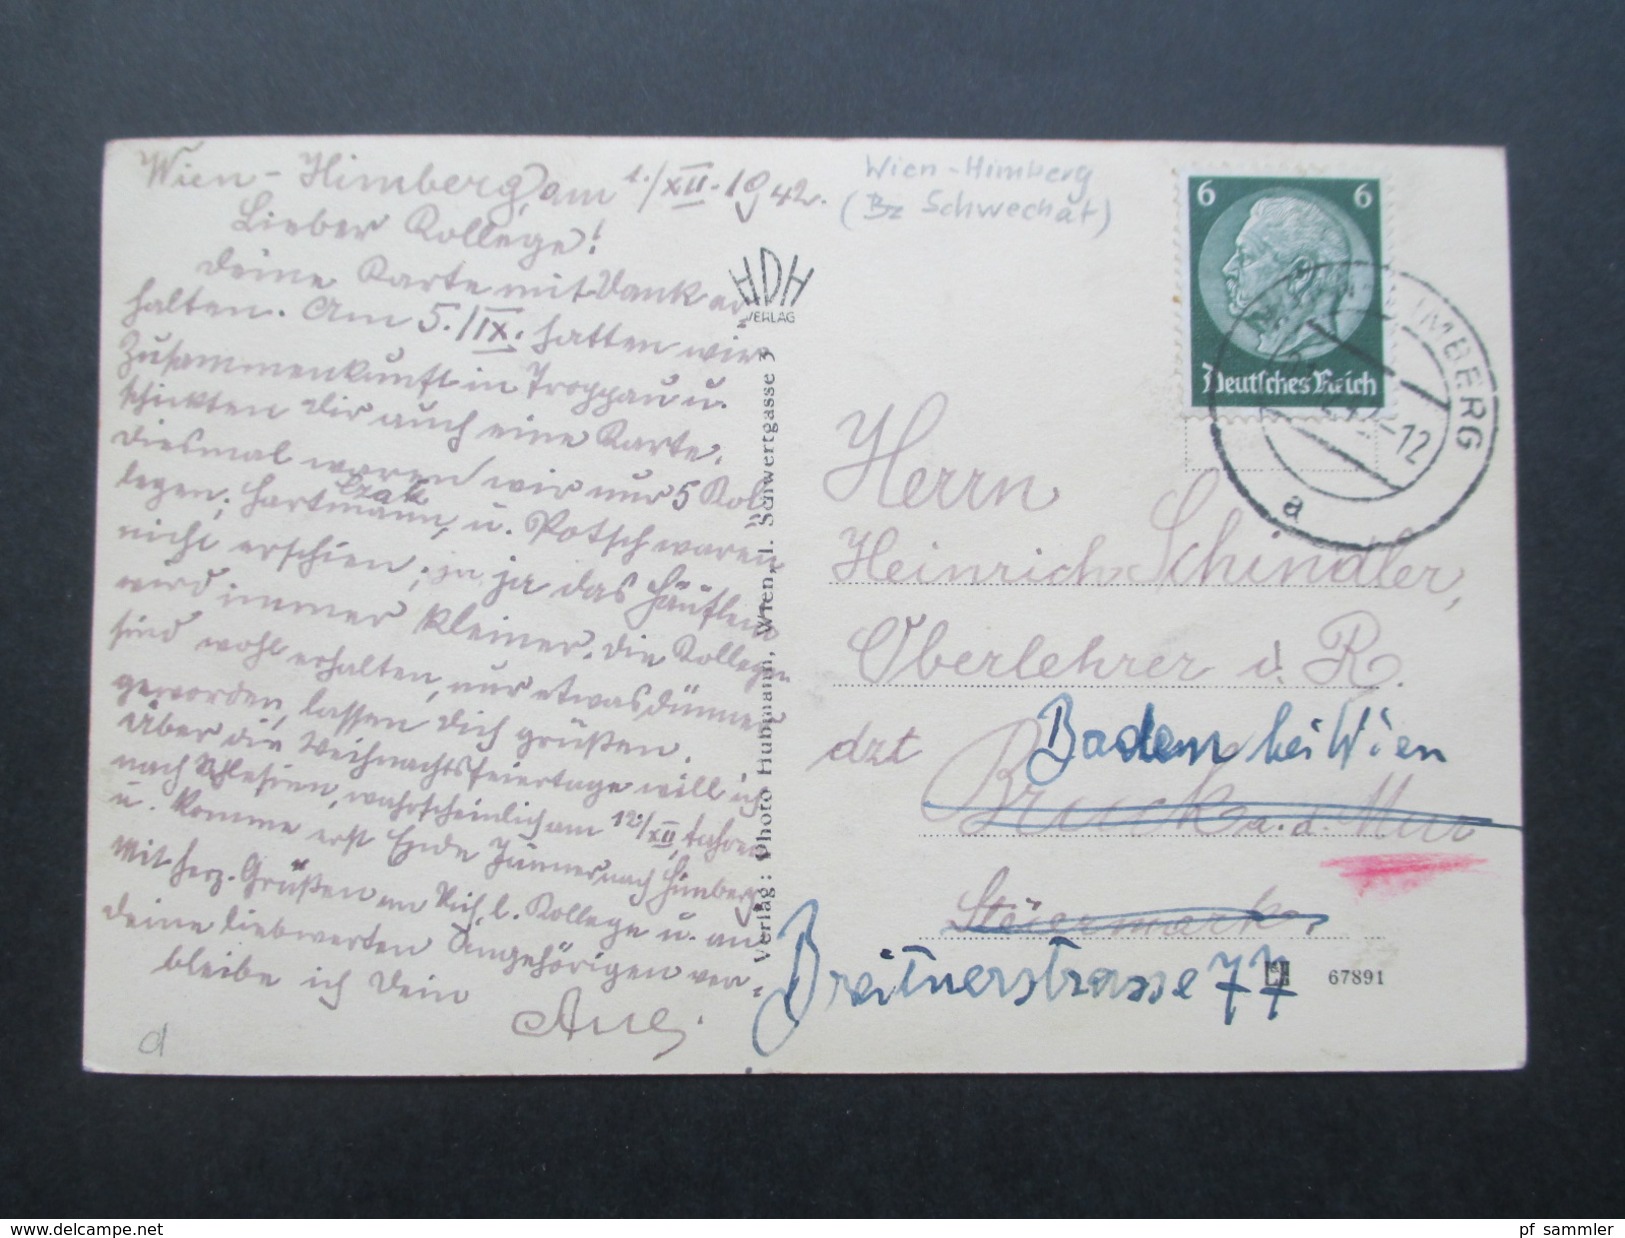 Wien-Himberg, am 1./XII. 1942.
Lieber Kollege!
Deine Karte mit Dank er-
halten. Am 5./IX. hatten wir
Zusammenkunft in Troppau u.
schickten Dir auch eine Karte.
Diesmal waren wir nur 5 Kol-
legen; Hartmann, Czak u. Potsch waren
nicht erschien; ja ja das Häuflein
wird immer kleiner. Die Kollegen
sind wohl erhalten, nur etwas dünner
geworden, lassen Dich grüßen.
Über die Weihnachtsfeiertage will ich
nach Schlesien, wahrscheinlich am 12./XII. fahren
u. komme erst Ende Jänner nach Himberg.
Mit herz. Grüßen an Dich, l. Kollege u. an
Deine liebwerten Angehörigen ver-
bleibe ich Dein
d
HDH
VERLAG
Verlag: Photo Hubmann, Wien, I. Schwertgasse 3
Wien-Himberg
(Bz Schwechat)
6 6
Deutsches Reich
HIMBERG
a
-12
Herrn
Heinrich Schindler,
Oberlehrer i. R.
dzt Baden bei Wien
Bruck a. d. Mur
Steiermark.
Breitnerstrasse 77
67891
delcampe.net
pf_sammler